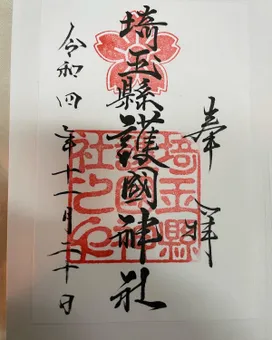 奉拝
埼玉縣護國神社
令和四年十一月二十日
埼玉縣
護國神
社之印